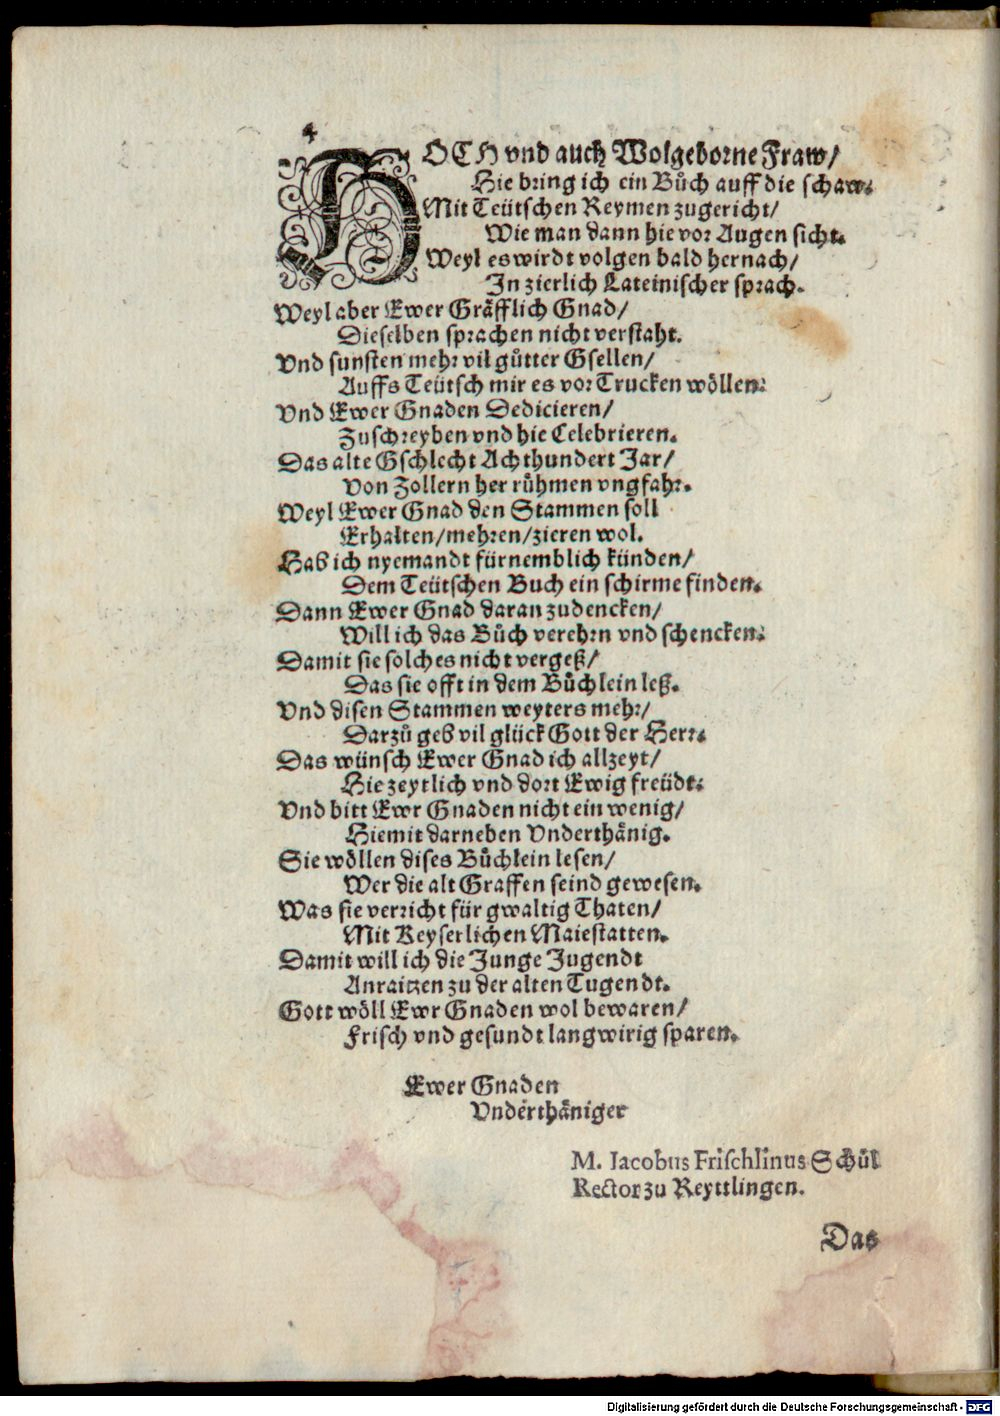 HOCH vnd auch Wolgeborne Fraw/
Hie bring ich ein Bůch auff die schaw.
Mit Teütschen Reymen zugericht/
Wie man dann hie vor Augen sicht.
Weyl es wirdt volgen bald hernach/
In zierlich Lateinischer sprach.
Weyl aber Ewer Gräfflich Gnad/
Dieselben sprachen nicht verstaht.
Vnd sunsten mehr vil gůtter Gsellen/
Auffs Teütsch mir es vor Trucken wöllen.
Vnd Ewer Gnaden Dedicieren/
Zuschreyben vnd hie Celebrieren.
Das alte Gschlecht Achthundert Jar/
Von Zollern her růhmen vngfahr.
Weyl Ewer Gnad den Stammen soll
Erhalten/mehren/zieren wol.
Hab ich nyemandt fürnemblich künden/
Dem Teütschen Buch ein schirme finden.
Dann Ewer Gnad daran zudencken/
Will ich das Bůch verehrn vnd schencken.
Damit sie solches nicht vergeß/
Das sie offt in dem Bůchlein leß.
Vnd disen Stammen weyters mehr/
Darzů geb vil glück Gott der Herr.
Das wünsch Ewer Gnad ich allzeyt/
Hie zeytlich vnd dort Ewig freüdt.
Vnd bitt Ewr Gnaden nicht ein wenig/
Hiemit darneben Vnderthänig.
Sie wöllen dises Bůchlein lesen/
Wer die alt Graffen seind gewesen.
Was sie verricht für gwaltig Thaten/
Mit Keyserlichen Maiestatten.
Damit will ich die Junge Jugendt
Anraitzen zu der alten Tugendt.
Gott wöll Ewr Gnaden wol bewaren/
Frisch vnd gesundt langwirig sparen.
Ewer Gnaden
Vnderthäniger
M. Iacobus Frischlinus Schůl
Rector zu Reyttlingen.
Das
Digitalisierung gefördert durch die Deutsche Forschungsgemeinschaft - DFG